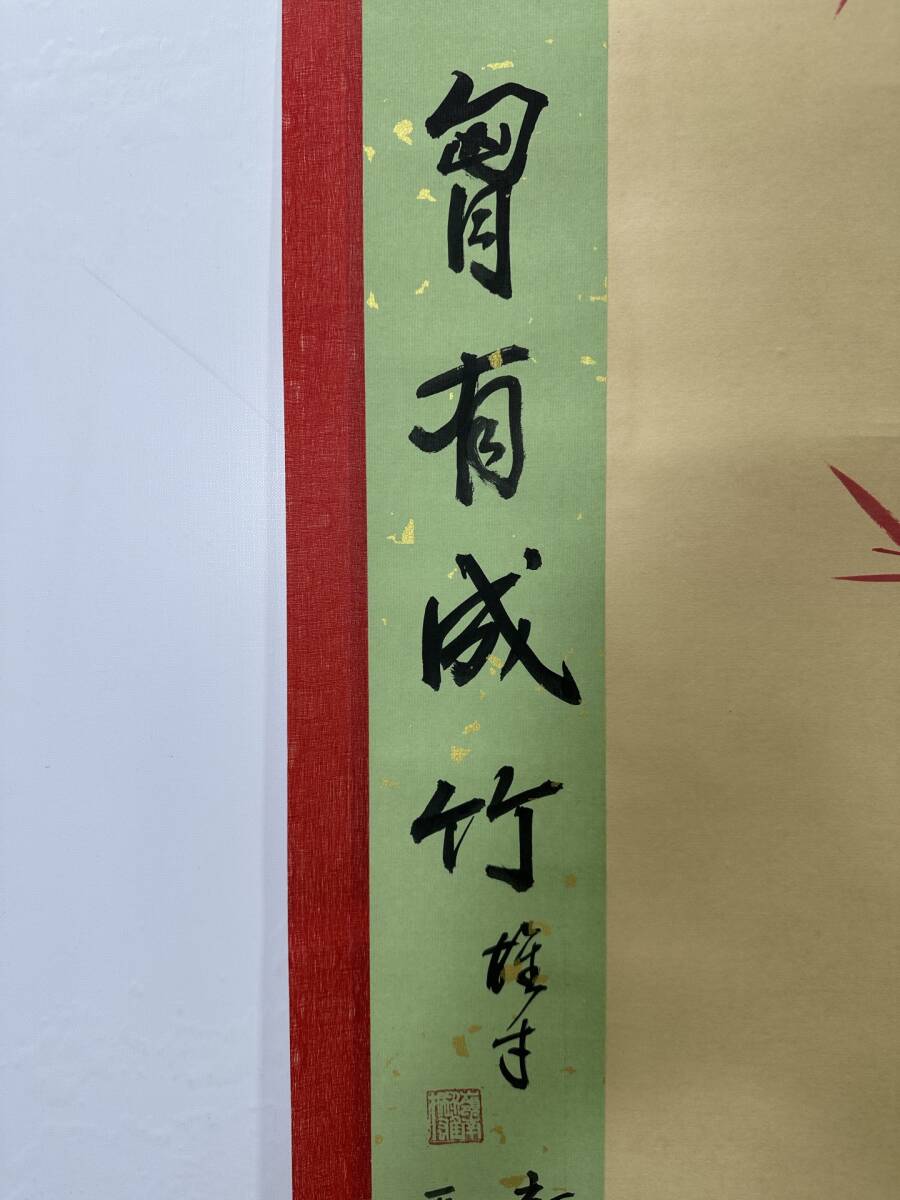 胷有成竹
雄才